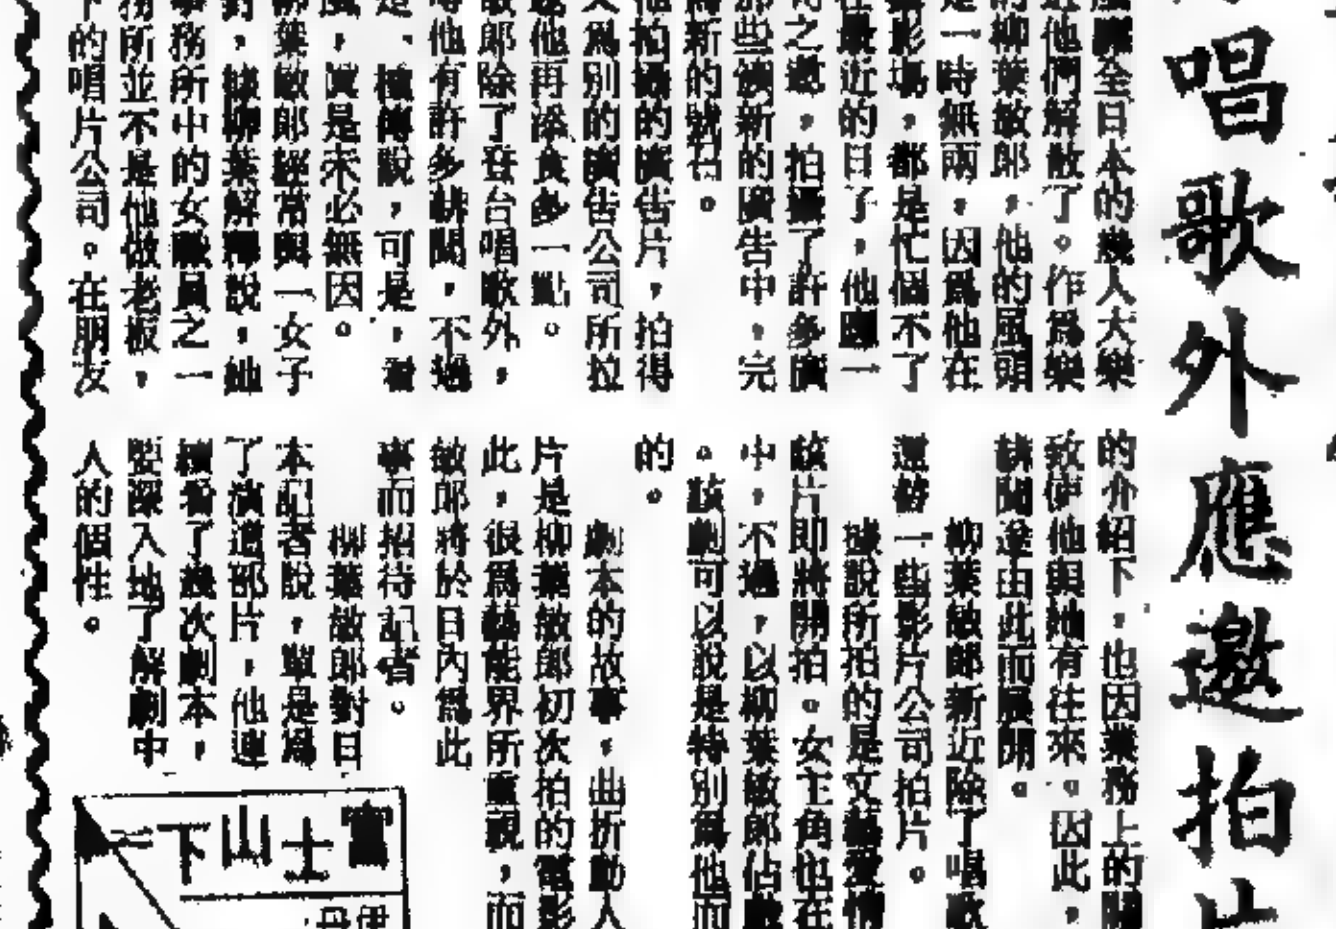 唱歌外應邀拍片
全日本的幾人大樂
近他們解散了。作為樂
的柳葉敏郎，他的風頭
是一時無兩，因為他在
影場，都是忙個不了
在最近的日子，他一
之邀，拍攝了許多廣
那些新的廣告中，完
新的號召。
他拍攝的廣告片，拍得
又為別的廣告公司所拉
他再添食多一點。
敏郎除了登台唱歌外，
他有許多緋聞，不過
是、據傳說，可是，看
風，真是未必無因。
柳葉敏郎經常與一女子
對，據柳葉解釋說，她
事務所中的女職員之一
務所並不是他做老板，
下的唱片公司。在朋友
的介紹下，也因業務上的關
致使他與她有往來。因此，
緋聞遂由此而展開。
柳葉敏郎新近除了唱歌
還替一些影片公司拍片。
據說所拍的是文藝愛情
該片即將開拍。女主角也在
中，不過，以柳葉敏郎佔戲
。該劇可以說是特別為他而
的。
劇本的故事，曲折動人
片是柳葉敏郎初次拍的電影
此，很為藝能界所重視，而
敏郎將於日內為此
事而招待記者。
柳葉敏郎對日
本記者說，單是為
了演這部片，他連
續看了幾次劇本，
要深入地了解劇中
人的個性。
富士山下
伊